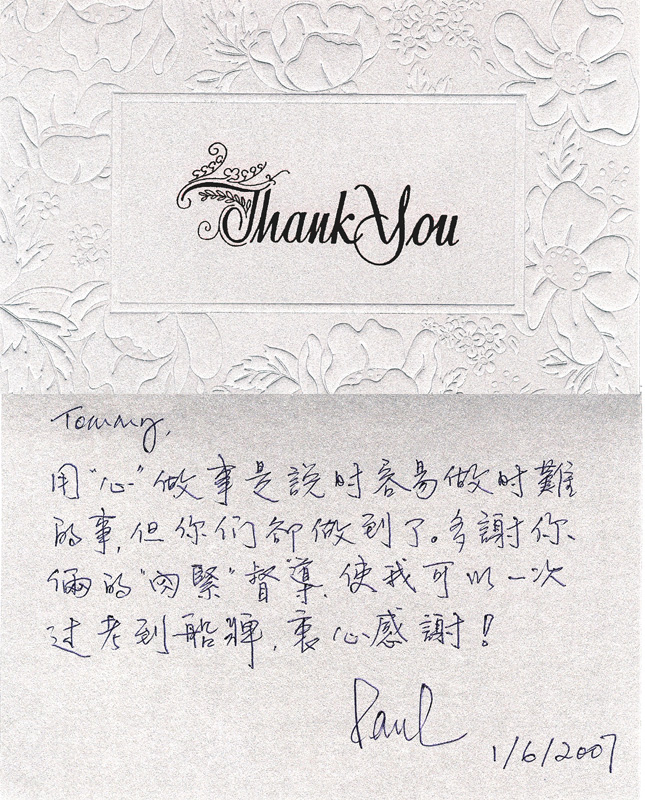 Thank You
Tommy,
用"心"做事是說时容易做时難
的事,但你们却做到了。多謝你
倆的"肉緊"督導,使我可以一次
过考到船牌,衷心感謝!
Paul
1/6/2007